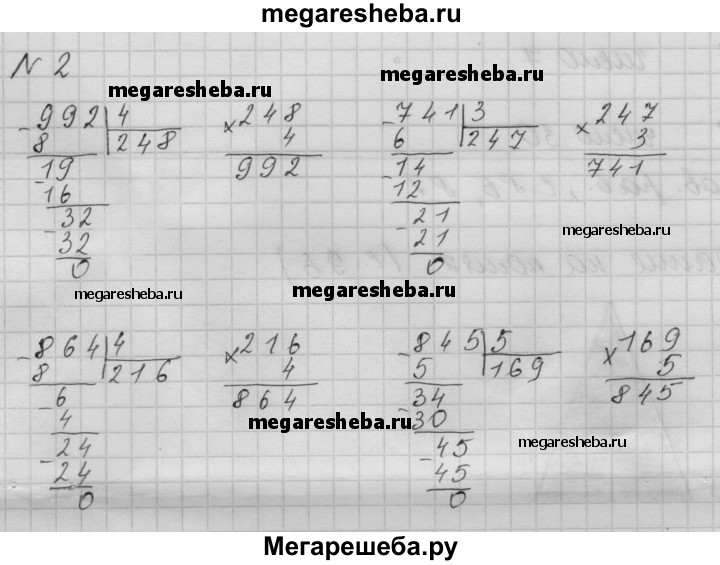 megaresheba.ru
N 2
megaresheba.ru
megaresheba.ru
992 | 4
8 | 248
19
16
32
32
0
× 248
4
992
741 | 3
6 | 247
14
12
21
21
0
× 247
3
741
megaresheba.ru
megaresheba.ru
megaresheba.ru
864 | 4
8 | 216
6
4
24
24
0
× 216
4
864
845 | 5
5 | 169
34
30
45
45
0
× 169
5
845
megaresheba.ru
megaresheba.ru
Мегарешеба.ру